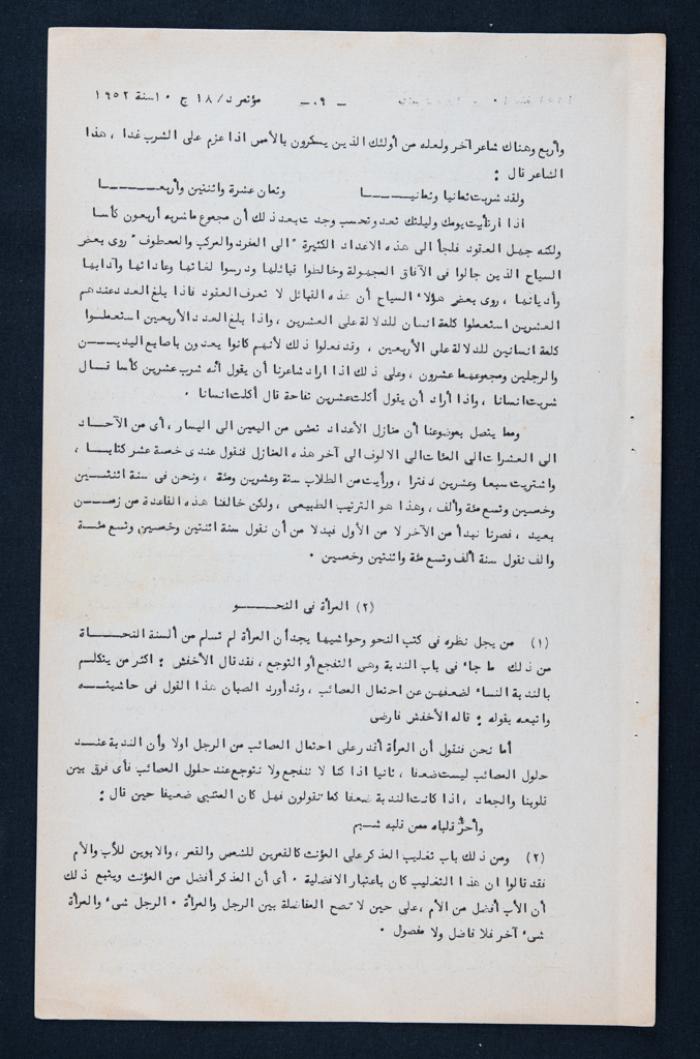 مؤتمر د/ ١٨ ج ١٠ سنة ١٩٥٢ — ٠٩ —
وأربع وهناك شاعر آخر ولعله من أولئك الذين يسكرون بالأمس اذا عزم على الشرب غدا ، هذا
الشاعر قال :
ولقد شربت ثمانيا وثمانيـــــا وثمان عشرة واثنتين وأربعــــــا
اذا ارتأيت يومك وليلتك تعد وتحسب وجدت بعد ذلك أن مجموع ما شربه أربعون كأسا
ولكنه جهل العقود فلجأ الى هذه الاعداد الكثيرة "الى المفرد والمركب والمعطوف" روى بعض
السياح الذين جالوا فى الآفاق المجهولة وخالطوا قبائلها ودرسوا لغاتها وعاداتها وآدابها
وأديانها ، روى بعض هؤلاء السياح أن هذه القبائل لا تعرف العقود فاذا بلغ العدد عندهم
العشرين استعملوا كلمة انسان للدلالة على العشرين ، واذا بلغ العدد الأربعين استعملــوا
كلمة انسانين للدلالة على الأربعين ، وقد فعلوا ذلك لأنهم كانوا يعدون باصابع اليديـــــن
والرجلين ومجموعهما عشرون ، وعلى ذلك اذا اراد شاعرنا أن يقول أنه شرب عشرين كأسا قـــال
شربت انسانا ، واذا أراد أن يقول أكلت عشرين تفاحة قال أكلت انسانا ٠
ومما يتصل بموضوعنا أن منازل الأعداد تمشى من اليمين الى اليسار ، أى من الآحـــاد
الى العشرات الى المئات الى الالوف الى آخر هذه المنازل فنقول عندى خمسة عشر كتابـــا ،
واشتريت سبعا وعشرين دفترا ، ورأيت من الطلاب ستة وعشرين ومئة ، ونحن فى سنة اثنتـــين
وخمسين وتسع مئة وألف ، وهذا هو الترتيب الطبيعى ، ولكن خالفنا هذه القاعدة من زمـــــن
بعيد ، فصرنا نبدأ من الآخر لا من الأول فبدلا من أن نقول سنة اثنتين وخمسين وتسع مئـــة
والف نقول سنة ألف وتسع مئة واثنتين وخمسين ٠
(٢) المرأة فى النحـــــو
(١) من يجل نظره فى كتب النحو وحواشيها يجد أن المرأة لم تسلم من ألسنة النحـــــاة
من ذلك ما جاء فى باب الندبة وهى التفجع أو التوجع ، فقد قال الأخفش : اكثر من يتكلــم
بالندبة النساء لضعفهن عن احتمال المصائب ، وقد أورد الصبان هذا القول فى حاشيتــــه
واتبعه بقوله : قاله الأخفش فارضى
أما نحن فنقول أن المرأة أقدر على احتمال المصائب من الرجل اولا وأن الندبة عنـــد
حلول المصائب ليست ضعفا ، ثانيا اذا كنا لا نتفجع ولا نتوجع عند حلول المصائب فأى فرق بين
قلوبنا والجماد ، اذا كانت الندبة ضعفا كما تقولون فهل كان المتنبى ضعيفا حين قال :
وأحرُّ قلباه ممن قلبه شبــم
(٢) ومن ذلك باب تغليب المذكر على المؤنث كالقمرين للشمس والقمر ، والابوين للأب والأم
فقد قالوا ان هذا التغليب كان باعتبار الافضلية ٠ أى أن المذكر أفضل من المؤنث ويتبع ذلك
أن الأب أفضل من الأم ، على حين لا تصح المفاضلة بين الرجل والمرأة ٠ الرجل شىء والمرأة
شىء آخر فلا فاضل ولا مفضول ٠